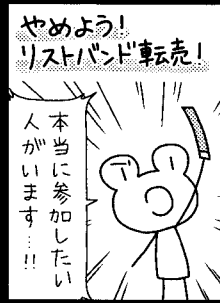 やめよう!
リストバンド転売!
本当に参加したい
人がいます…!!